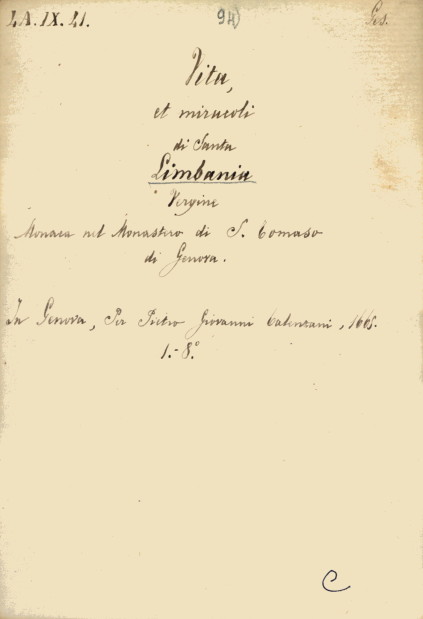 LA. IX. LI. 94) Ges.
Vita,
et miracoli
di Santa
Limbania
Vergine
Monaca nel Monastero di S. Tomaso
di Genova.
In Genova, Per Pietro Giovanni Calenzani, 1665.
1.-8.°
C